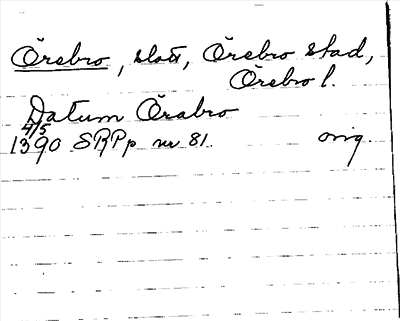 Örebro, slott, Örebro stad,
Örebro l.
Datum Örabro
4/5
1390 SRPp nr 81. orig.